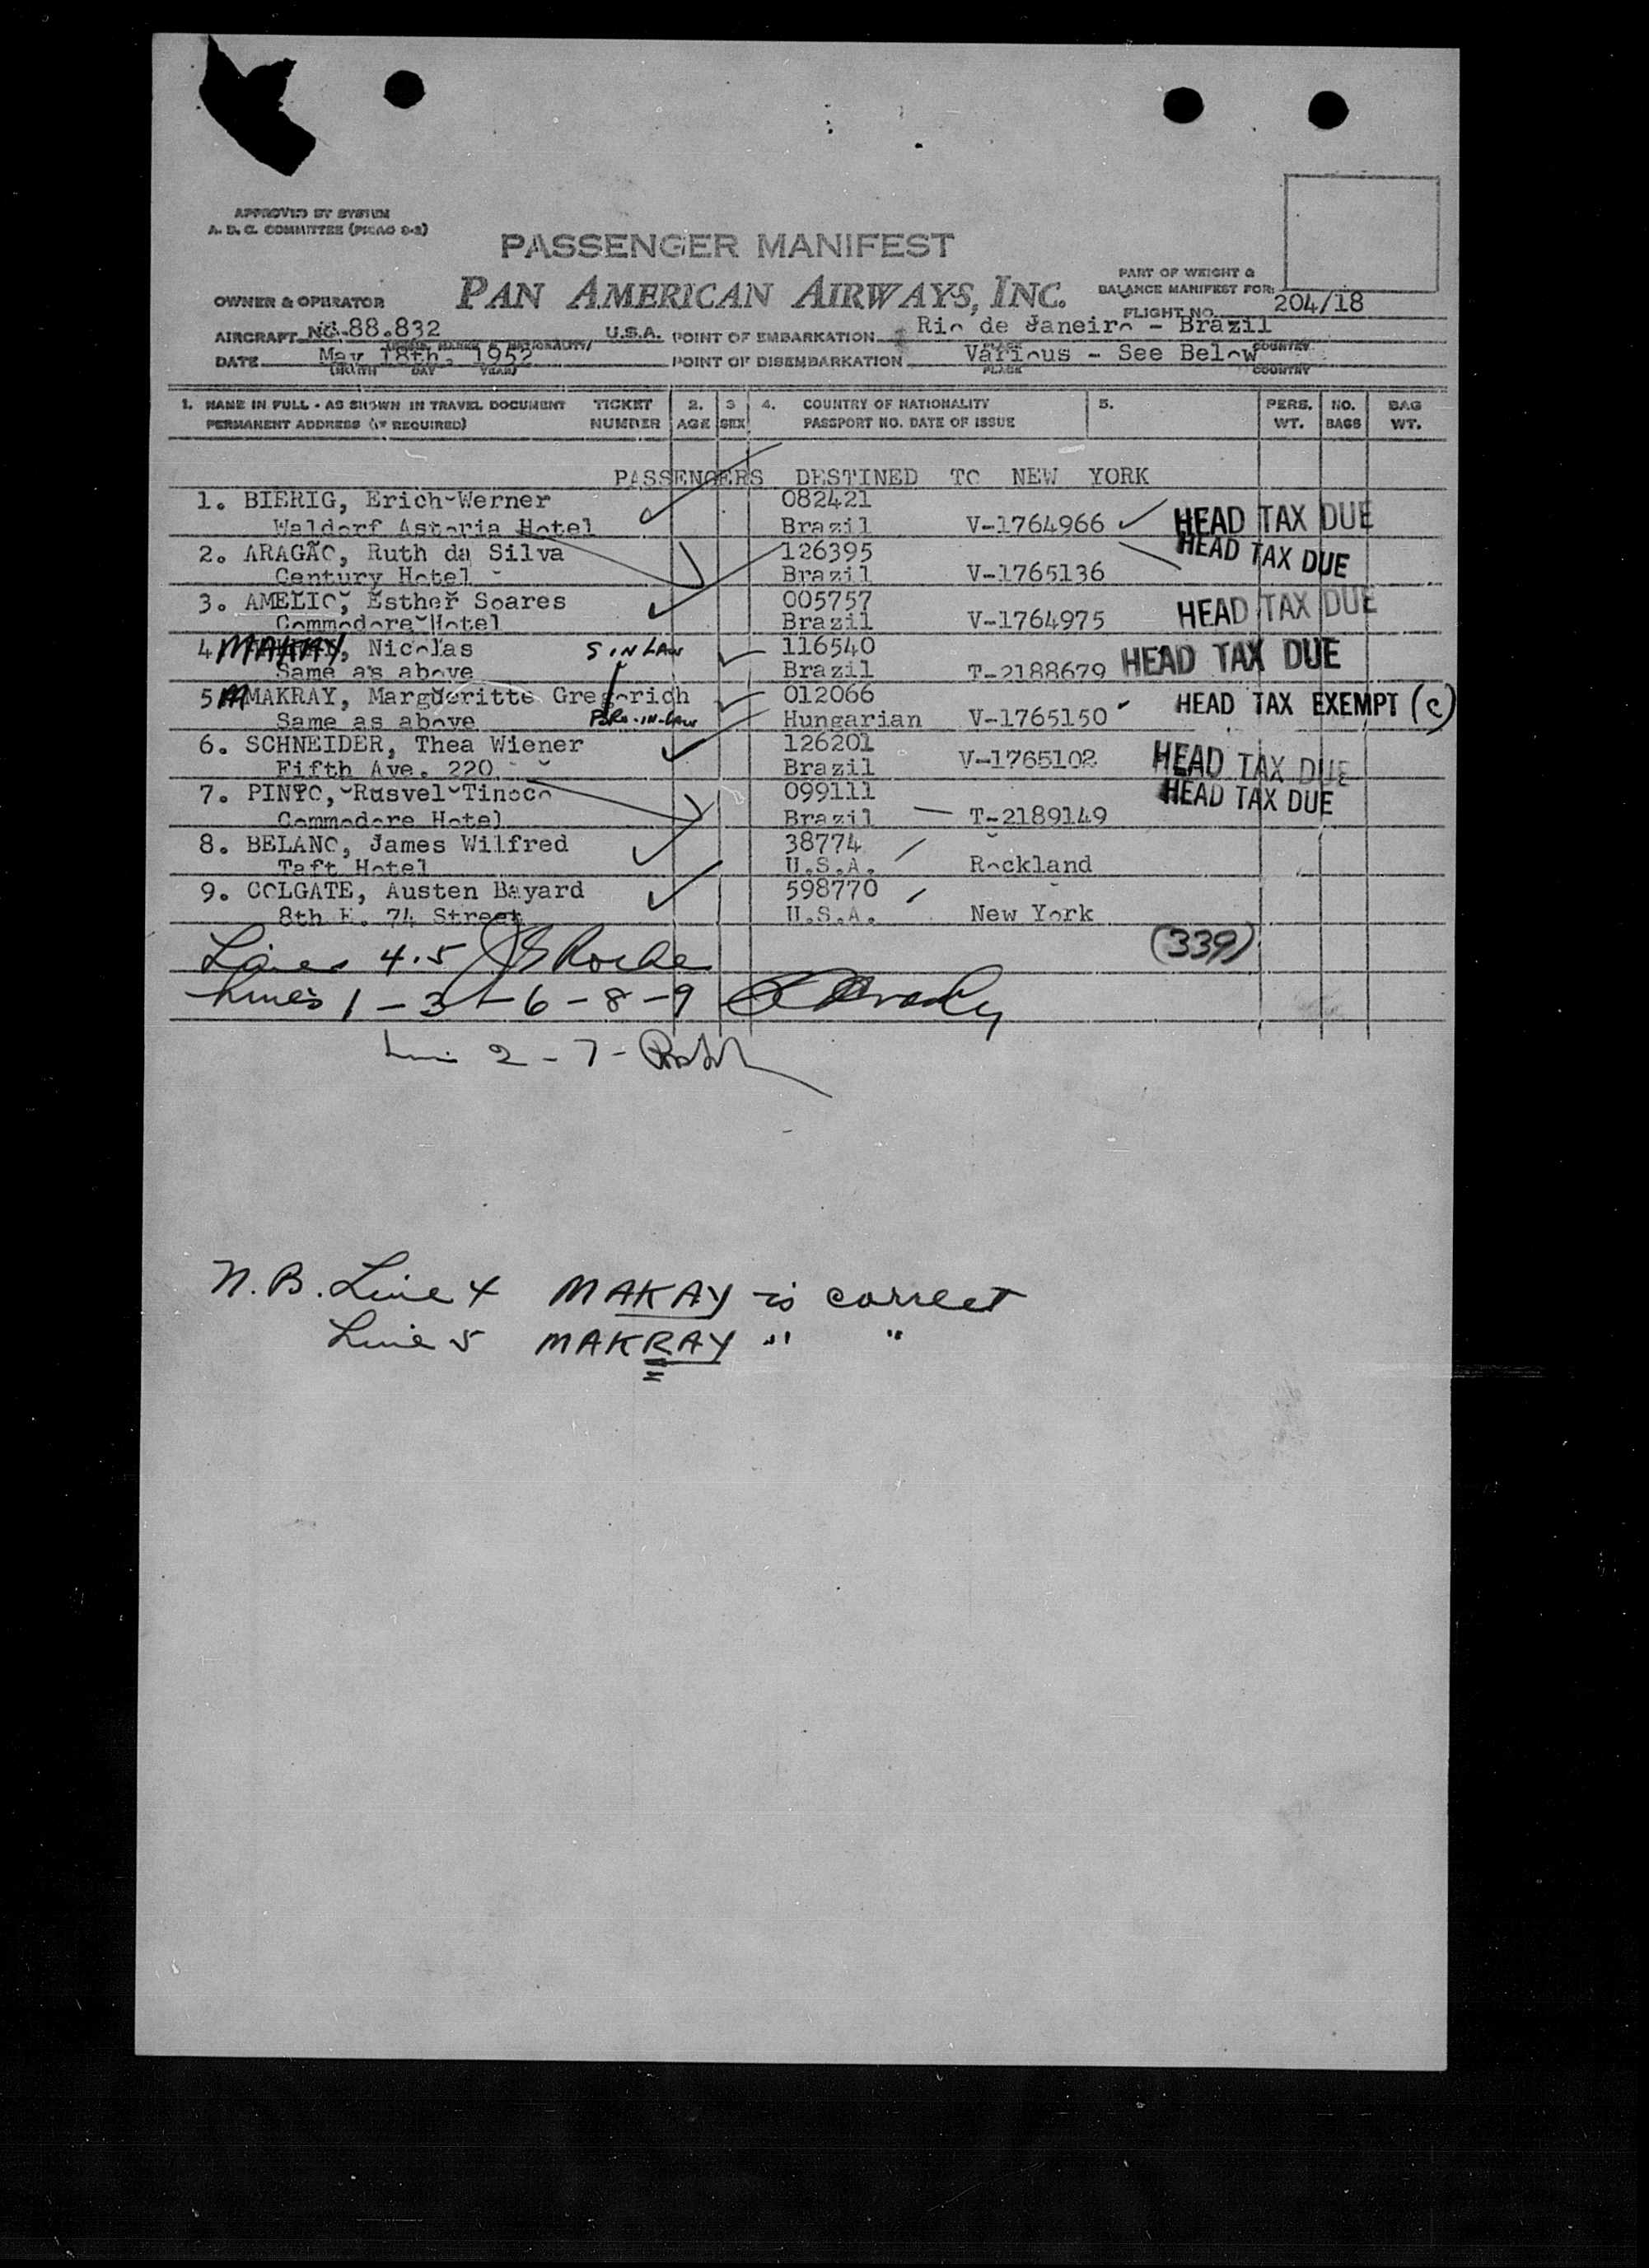 APPROVED BY SYSTEM
A. D. C. COMMITTEE (PICAO 8-2)
PASSENGER MANIFEST
PAN AMERICAN AIRWAYS, INC.
PART OF WEIGHT &
BALANCE MANIFEST FOR:
OWNER & OPERATOR
FLIGHT NO. 204/18
AIRCRAFT NC-88.832 U.S.A. POINT OF EMBARKATION Rio de Janeiro - Brazil
DATE May 18th, 1952 POINT OF DISEMBARKATION Various - See Below
(MONTH DAY YEAR) PLACE COUNTRY
1. NAME IN FULL - AS SHOWN IN TRAVEL DOCUMENT TICKET 2. 3 4. COUNTRY OF NATIONALITY 5. PERS. NO. BAG
PERMANENT ADDRESS (IF REQUIRED) NUMBER AGE SEX PASSPORT NO. DATE OF ISSUE WT. BAGS WT.
PASSENGERS DESTINED TO NEW YORK
1. BIERIG, Erich Werner 082421
Waldorf Astoria Hotel Brazil V-1764966 HEAD TAX DUE
2. ARAGÃO, Ruth da Silva 126395 HEAD TAX DUE
Century Hotel Brazil V-1765136
3. AMELIO, Esther Soares 005757 HEAD TAX DUE
Commodore Hotel Brazil V-1764975
4 MAKAY, Nicolas S IN LAW 116540 HEAD TAX DUE
Same as above Brazil T-2188679
5 MAKRAY, Margueritte Gregorich 012066 HEAD TAX EXEMPT (c)
Same as above Hungarian V-1765150
6. SCHNEIDER, Thea Wiener 126201
Fifth Ave. 220 Brazil V-1765102 HEAD TAX DUE
7. PINTO, Rusvel Tinoco 099111 HEAD TAX DUE
Commodore Hotel Brazil T-2189149
8. BELANO, James Wilfred 38774
Taft Hotel U.S.A. Rockland
9. COLGATE, Austen Bayard 598770
8th E. 74 Street U.S.A. New York
Lines 4.5 (339)
Lines 1 - 3 - 6 - 8 - 9
2 - 7 -
N.B. Line 4 MAKAY is correct
Line 5 MAKRAY " "